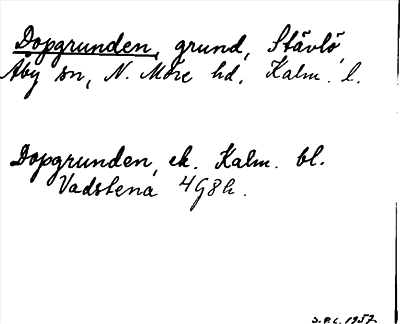 Dopgrunden, grund, Stävlö,
Åby sn, N. Möre hd, Kalm. l.
Dopgrunden, ek. Kalm. bl.
Vadstena 4G8h.
S.P.C. 1957